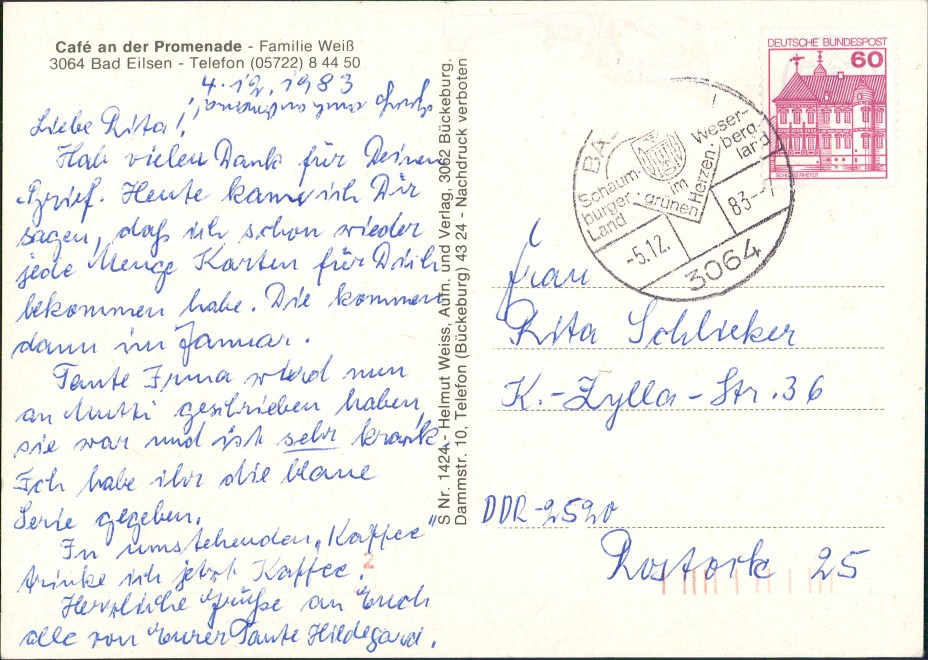 Café an der Promenade - Familie Weiß
3064 Bad Eilsen - Telefon (05722) 8 44 50
4.12.1983
Liebe Rita!
Hab vielen Dank für Deinen
Brief. Heute kann ich Dir
sagen, daß ich schon wieder
jede Menge Karten für Dich
bekommen habe. Die kommen
dann im Januar.
Tante Irma wird nun
an Mutti geschrieben haben,
sie war und ist sehr krank.
Ich habe ihr die blaue
Serie gegeben.
In umstehenden „Kaffee"
trinke ich jetzt Kaffee.
Herzliche Grüße an Euch
alle von Eurer Tante Hildegard.
2
S Nr. 1424 - Helmut Weiss, Aufn. und Verlag, 3062 Bückeburg,
Dammstr. 10, Telefon (Bückeburg) 43 24 - Nachdruck verboten
DEUTSCHE BUNDESPOST
60
BA
Schaum-
burger
Land
im
grünen
Herzen
Weser-
berg-
land
-5.12.
83-7
3064
Frau
Rita Schlieker
K.-Zylla-Str. 36
DDR-2520
Rostock 25